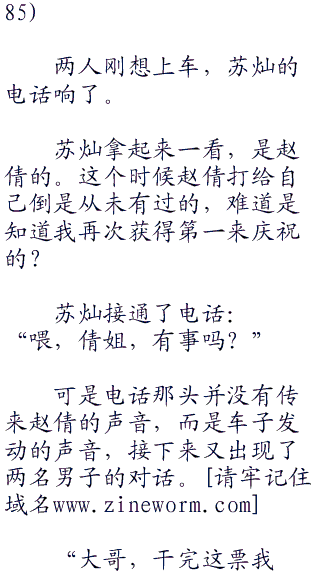 85)
两人刚想上车，苏灿的
电话响了。
苏灿拿起来一看，是赵
倩的。这个时候赵倩打给自
己倒是从未有过的，难道是
知道我再次获得第一来庆祝
的？
苏灿接通了电话：
“喂，倩姐，有事吗？”
可是电话那头并没有传
来赵倩的声音，而是车子发
动的声音，接下来又出现了
两名男子的对话。[请牢记住
域名www.zineworm.com]
“大哥，干完这票我